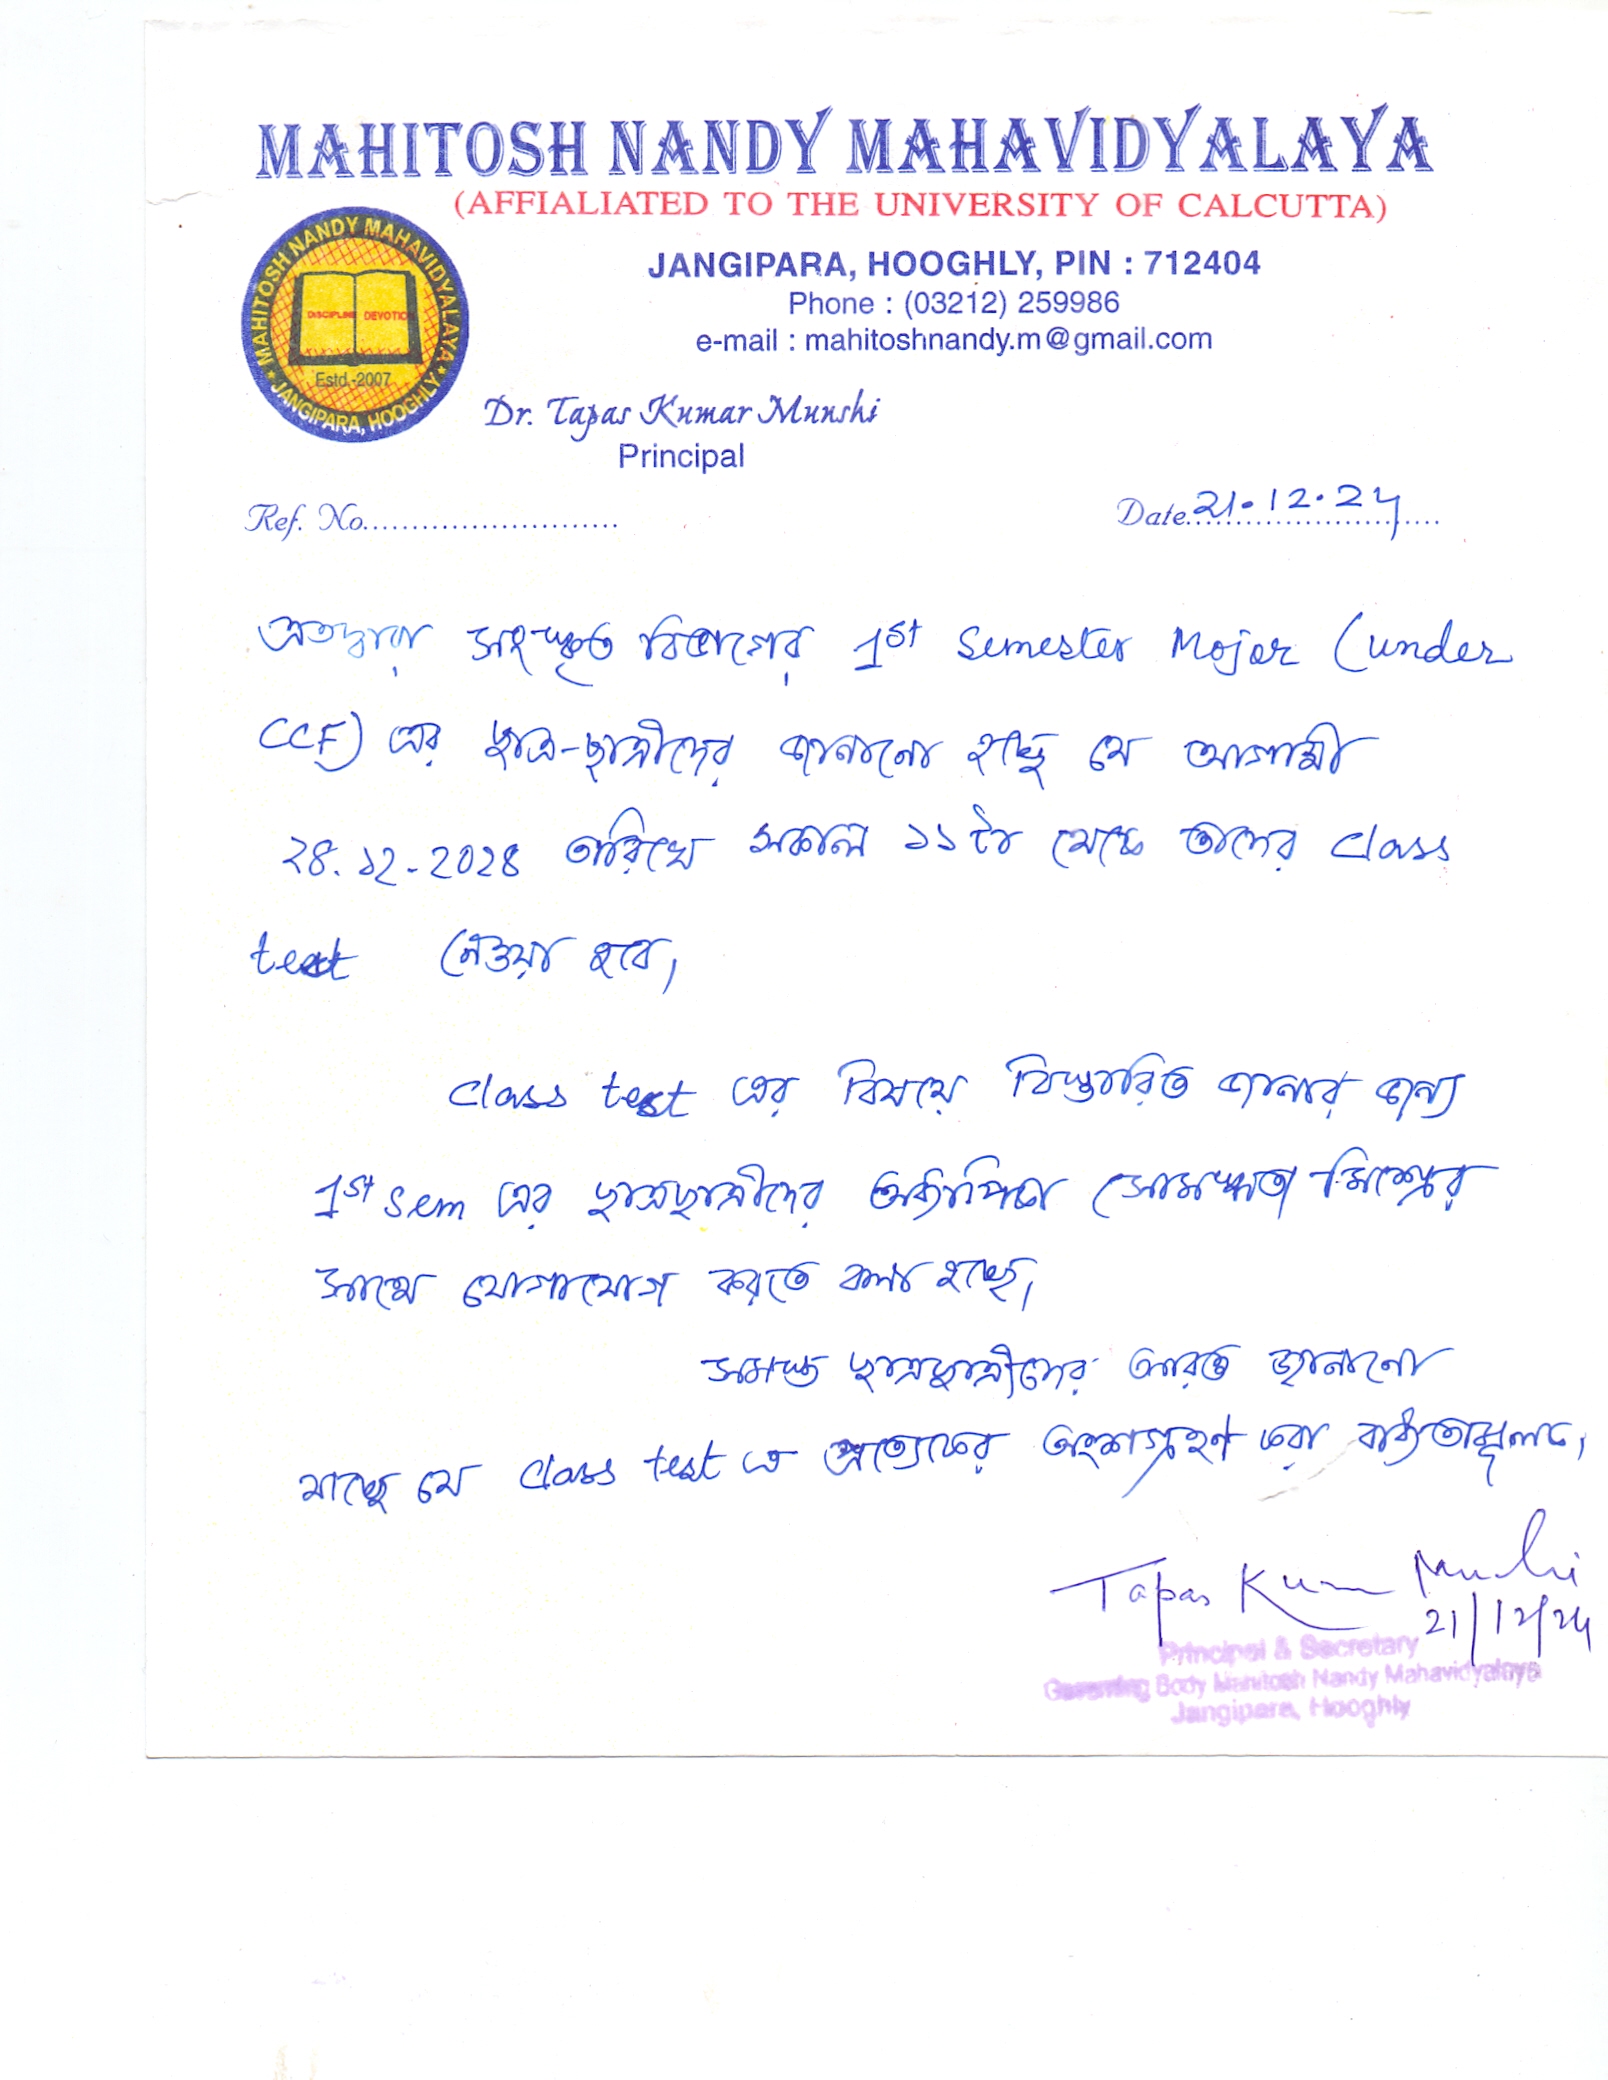 MAHITOSH NANDY MAHAVIDYALAYA
(AFFIALIATED TO THE UNIVERSITY OF CALCUTTA)
JANGIPARA, HOOGHLY, PIN : 712404
Phone : (03212) 259986
e-mail : mahitoshnandy.m@gmail.com
MAHITOSH NANDY MAHAVIDYALAYA
DISCIPLINE DEVOTION
Estd.-2007
JANGIPARA, HOOGHLY
Dr. Tapas Kumar Munshi
Principal
Ref. No.......................... Date 21.12.24
এতদ্বারা সংস্কৃত বিভাগের 1st Semester Major (under
CCF) এর ছাত্র-ছাত্রীদের জানানো হচ্ছে যে আগামী
২৪.১২.2০২৪ তারিখে সকাল ১১ টা থেকে তাদের class
test নেওয়া হবে।
Class test এর বিষয়ে বিস্তারিত জানার জন্য
1st sem এর ছাত্রছাত্রীদের অধ্যাপিকা সোমলতা মিশ্রের
সাথে যোগাযোগ করতে বলা হচ্ছে।
সমস্ত ছাত্রছাত্রীদের আরও জানানো
যাচ্ছে যে class test এ প্রত্যেকের অংশগ্রহণ করা বাধ্যতামূলক।
Tapas Kumar Munshi
21/12/24
Principal & Secretary
Governing Body Mahitosh Nandy Mahavidyalaya
Jangipara, Hooghly